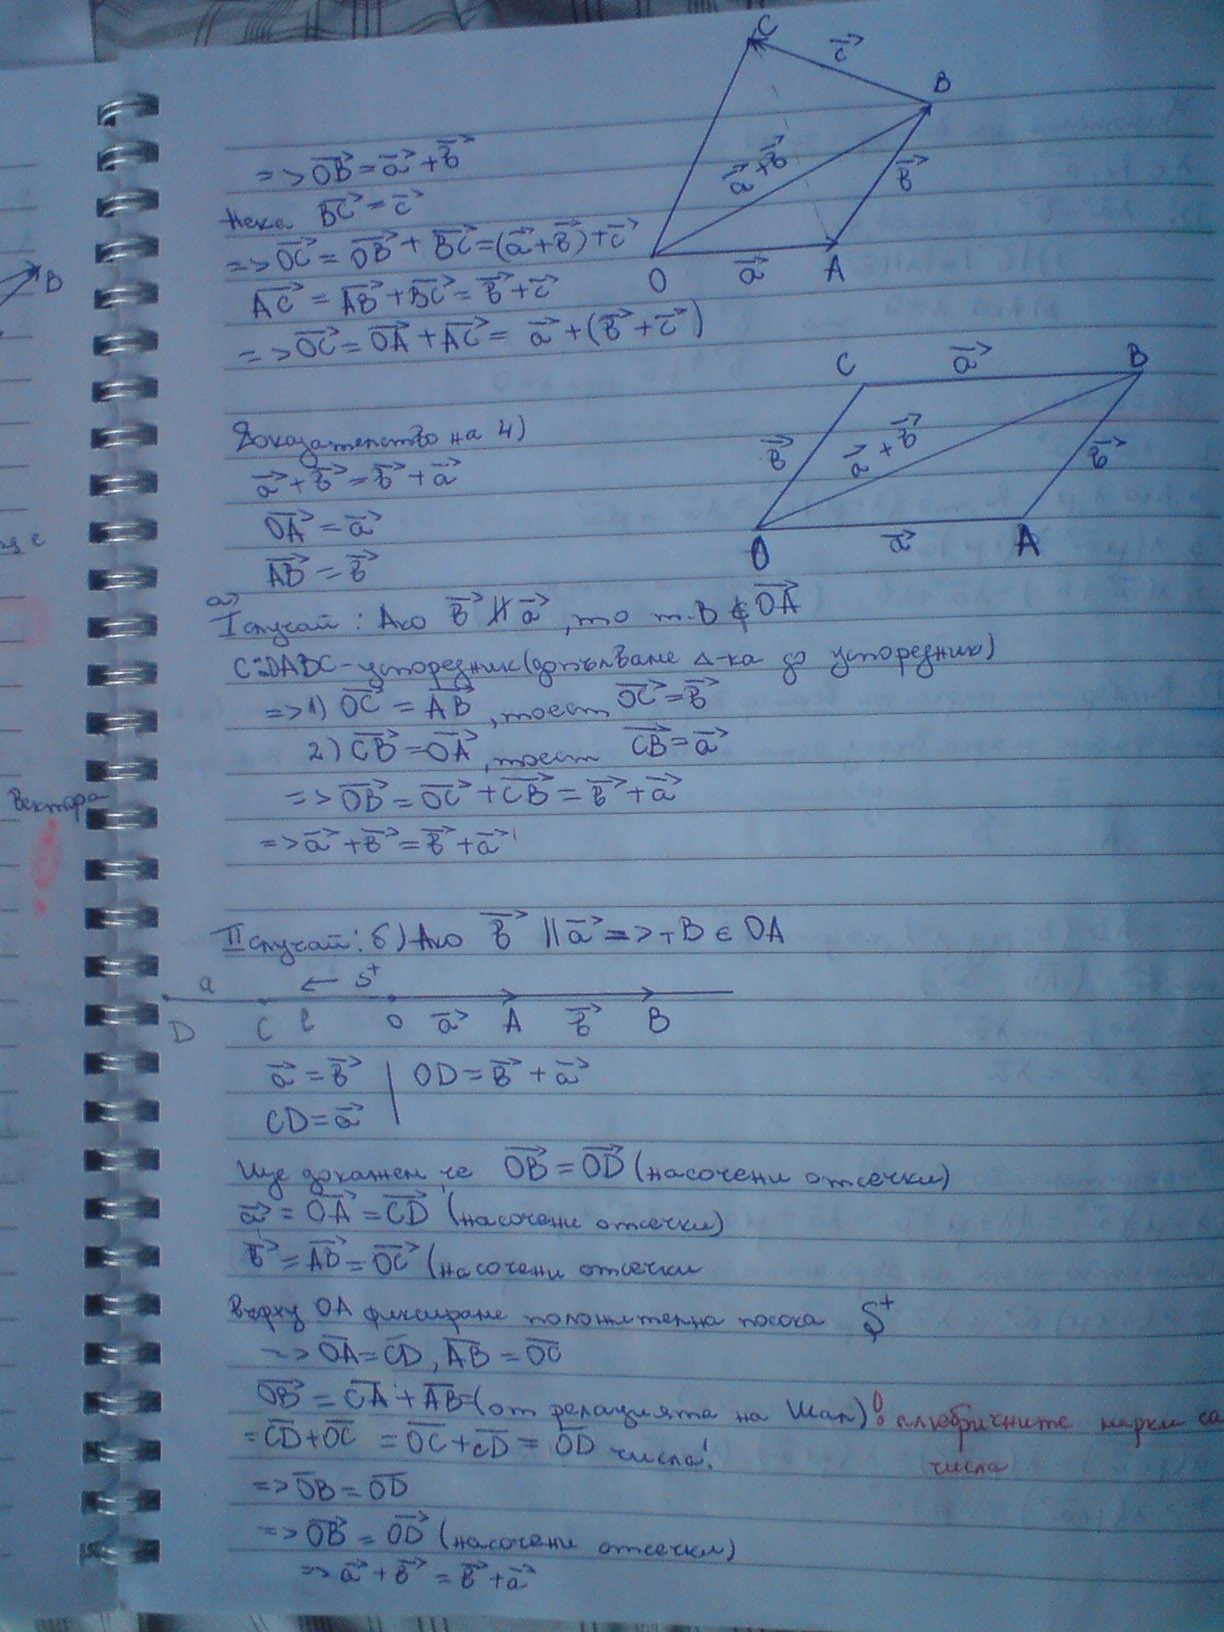 C
c⃗
B
=> OB⃗ = a⃗ + b⃗
a⃗ + b⃗
b⃗
Нека BC⃗ = c⃗
=> OC⃗ = OB⃗ + BC⃗ = (a⃗ + b⃗) + c⃗
O a⃗ A
B
AC⃗ = AB⃗ + BC⃗ = b⃗ + c⃗
=> OC⃗ = OA⃗ + AC⃗ = a⃗ + (b⃗ + c⃗)
C a⃗ B
Доказателство на 4)
b⃗ a⃗ + b⃗ b⃗
a⃗ + b⃗ = b⃗ + a⃗
OA⃗ = a⃗
O a⃗ A
AB⃗ = b⃗
а)
I случай: Ако b⃗ ∦ a⃗, то т. B ∉ OA⃗
C: OABC - успоредник (допълваме Δ-ка до успоредник)
=> 1) OC⃗ = AB⃗, тоест OC⃗ = b⃗
2) CB⃗ = OA⃗, тоест CB⃗ = a⃗
=> OB⃗ = OC⃗ + CB⃗ = b⃗ + a⃗
Вектора
=> a⃗ + b⃗ = b⃗ + a⃗
II случай: б) Ако b⃗ || a⃗ => т B ∈ OA
a ← S⁺
D C O a⃗ A b⃗ B
a⃗ = b⃗ | OD = b⃗ + a⃗
CD = a⃗
Ще докажем, че OB⃗ = OD⃗ (насочени отсечки)
a⃗ = OA⃗ = CD⃗ (насочени отсечки)
b⃗ = AB⃗ = OC⃗ (насочени отсечки
Върху OA фиксираме положителна посока S⁺
=> O̅A̅ = C̅D̅, A̅B̅ = O̅C̅
O̅B̅ = O̅A̅ + A̅B̅ = (от релацията на Шал) ! алгебричните мерки са
= C̅D̅ + O̅C̅ = O̅C̅ + C̅D̅ = O̅D̅ числа! числа
=> O̅B̅ = O̅D̅
=> OB⃗ = OD⃗ (насочени отсечки)
=> a⃗ + b⃗ = b⃗ + a⃗